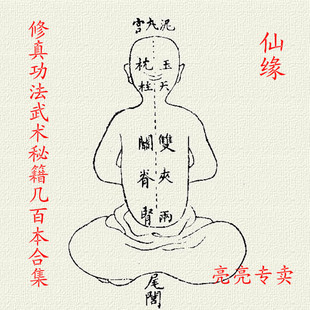 修真功法武术秘籍几百本合集
仙缘
泥丸宫
玉枕
天柱
雙關
夾脊
兩腎
尾閭
亮亮专卖